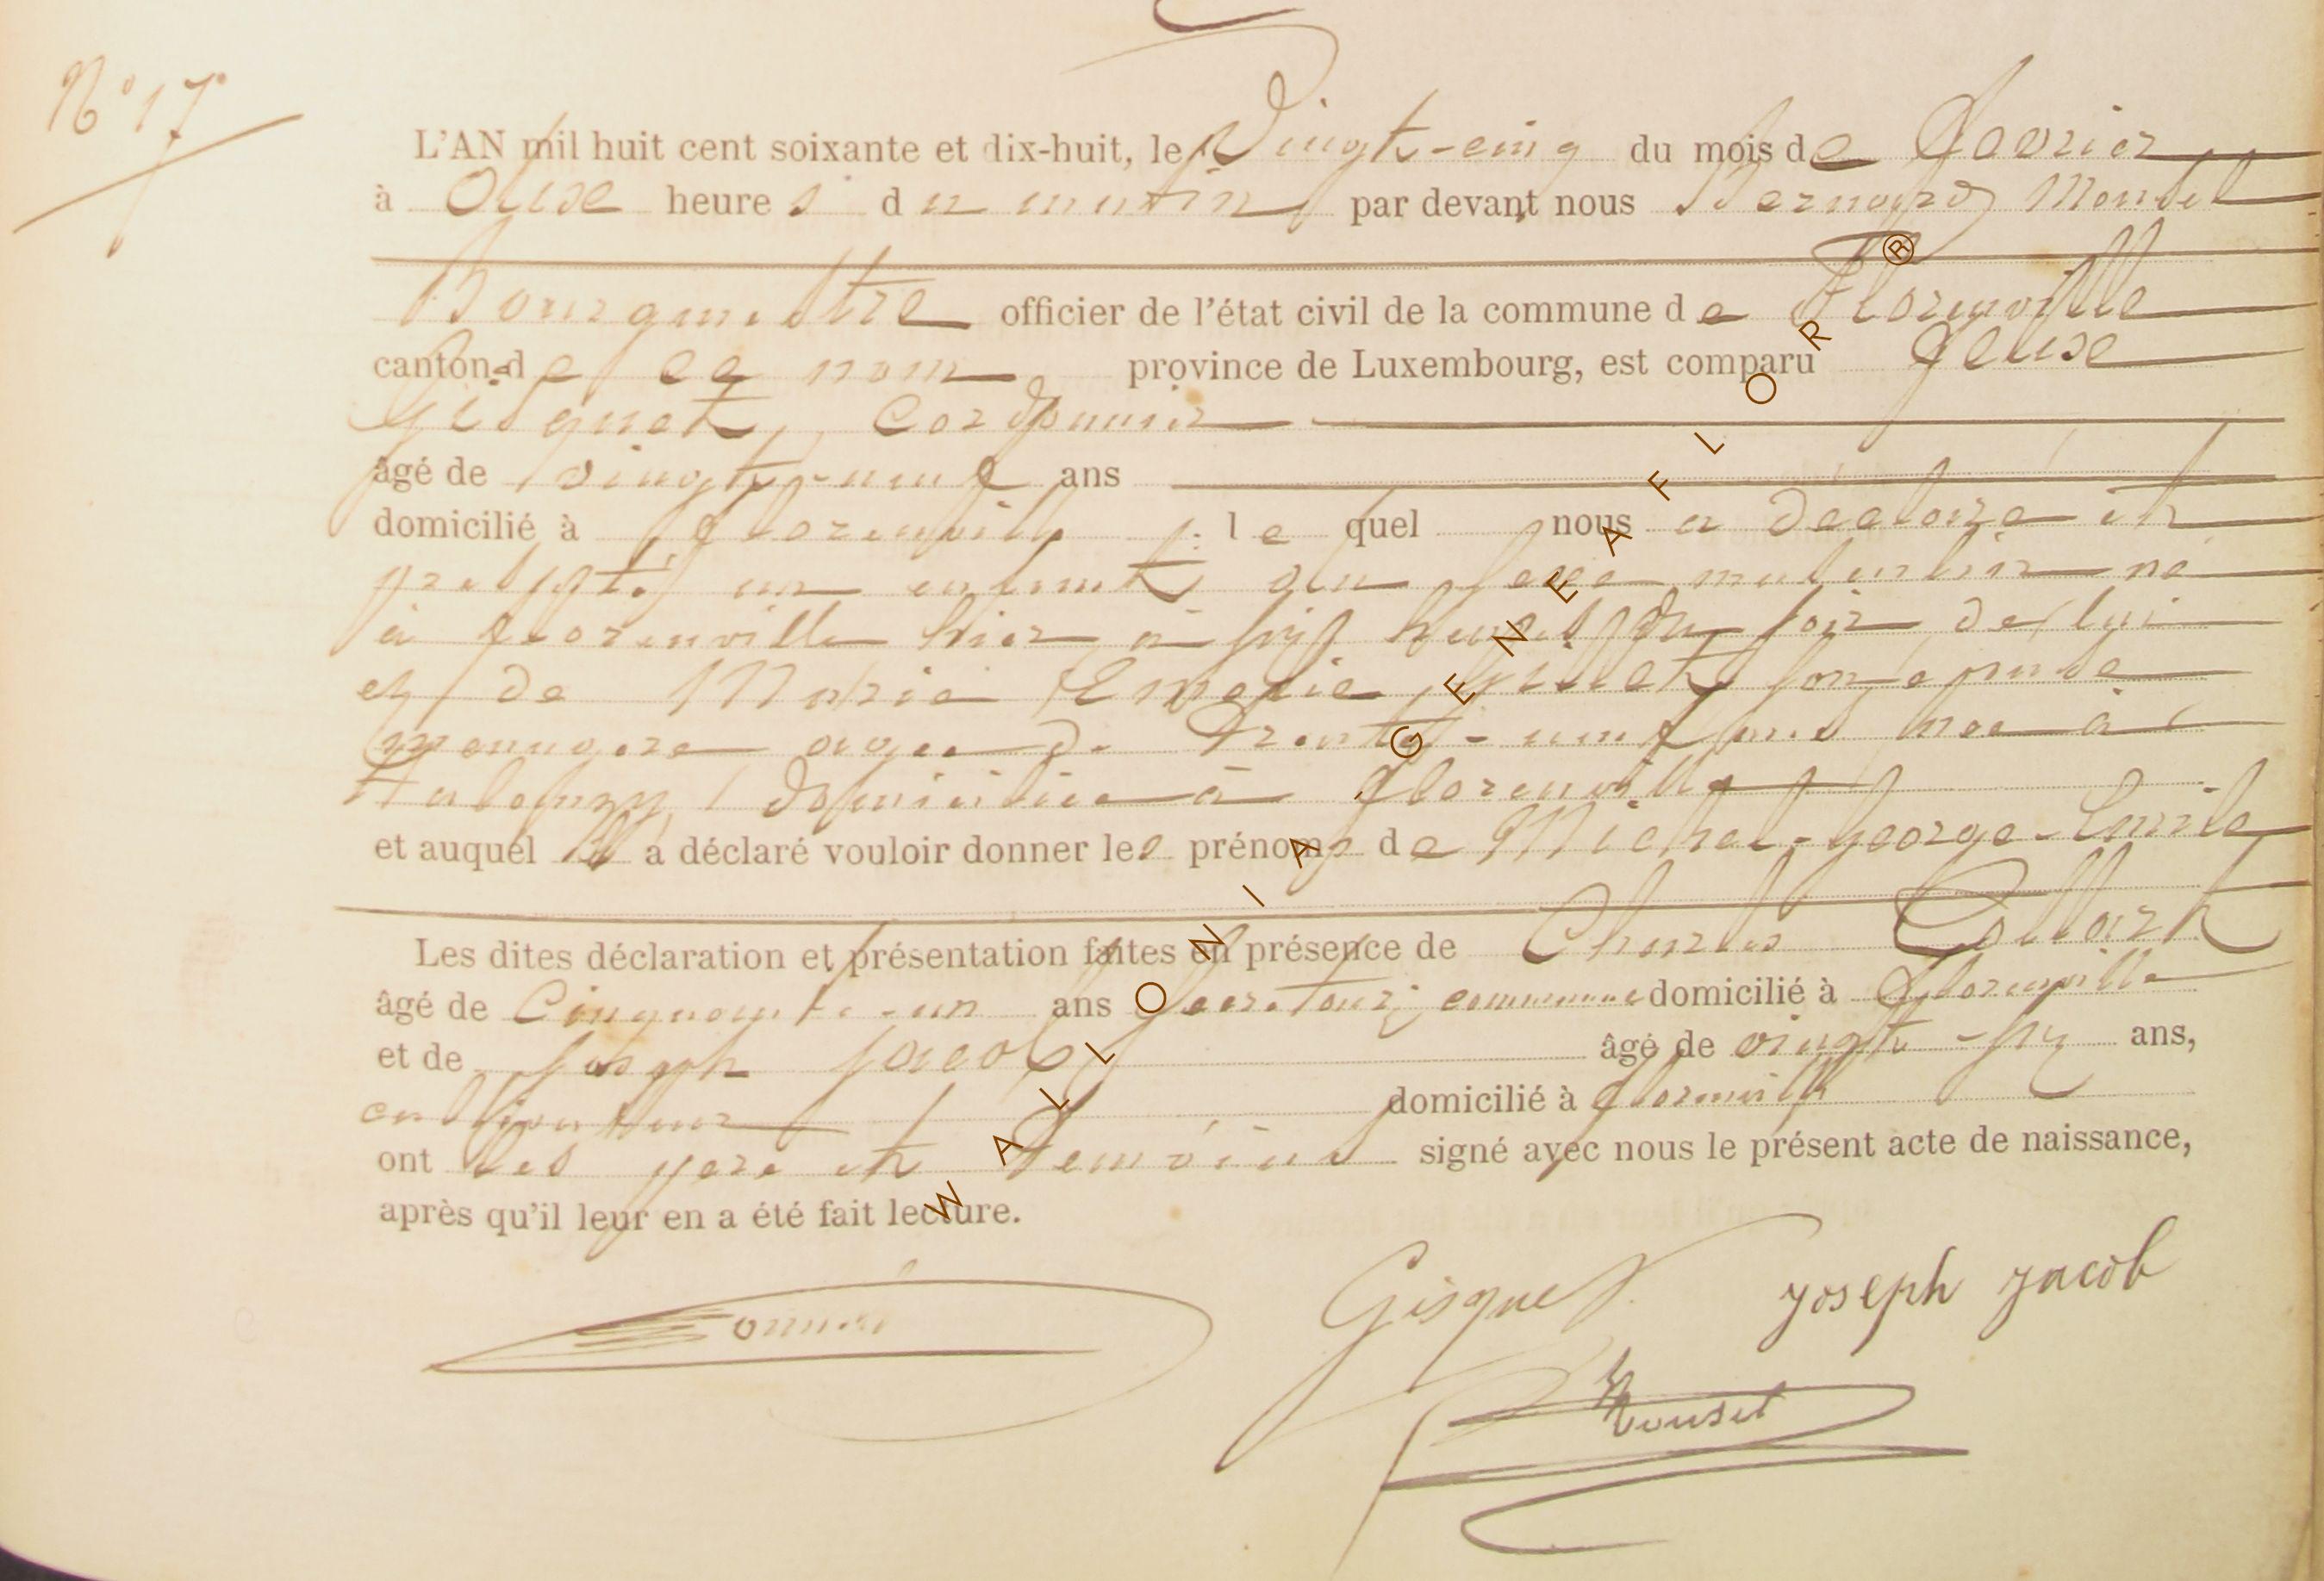 N° 17
L'AN mil huit cent soixante et dix-huit, le Vingt-cinq du mois de Fevrier
à Onze heures du matin par devant nous Bernard
Bourgmestre officier de l'état civil de la commune de Florenville
canton de ce nom province de Luxembourg, est comparu
Gisquet, Cordonnier
âgé de vingt-neuf ans
domicilié à florenville le quel nous a déclaré et
présenté un enfant du sexe masculin né
à florenville hier à six heures du soir de lui
et de Marie son épouse
menagère agée de Trente-neuf ans née à
domiciliée à florenville
et auquel il a déclaré vouloir donner les prénoms de Michel-george-Emile
Les dites déclaration et présentation faites en présence de Charles Collart
âgé de Cinquante-un ans Secretaire communal domicilié à Florenville
et de Joseph Jacob âgé de vingt-six ans,
domicilié à florenville
ont les père et témoins signé avec nous le présent acte de naissance,
après qu'il leur en a été fait lecture.
Gisquet Joseph Jacob
WALLONIA GENEAFLOR ®